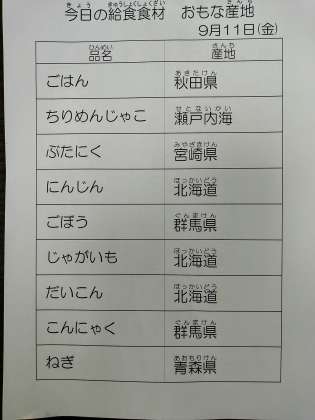 今日の給食食材　おもな産地
9月11日(金)
品名　産地
ごはん　秋田県
ちりめんじゃこ　瀬戸内海
ぶたにく　宮崎県
にんじん　北海道
ごぼう　群馬県
じゃがいも　北海道
だいこん　北海道
こんにゃく　群馬県
ねぎ　青森県